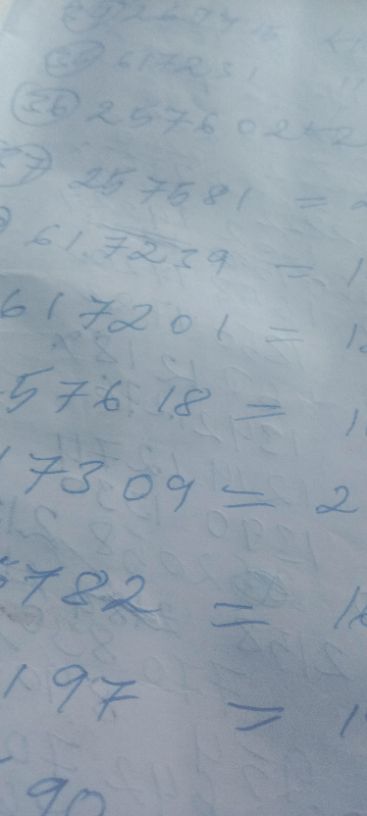 617231
36 257602 = 2
257581 = 2
617239 = 1
617201 = 1
57618 = 1
17309 = 2
782 = 1
197 = 1
90